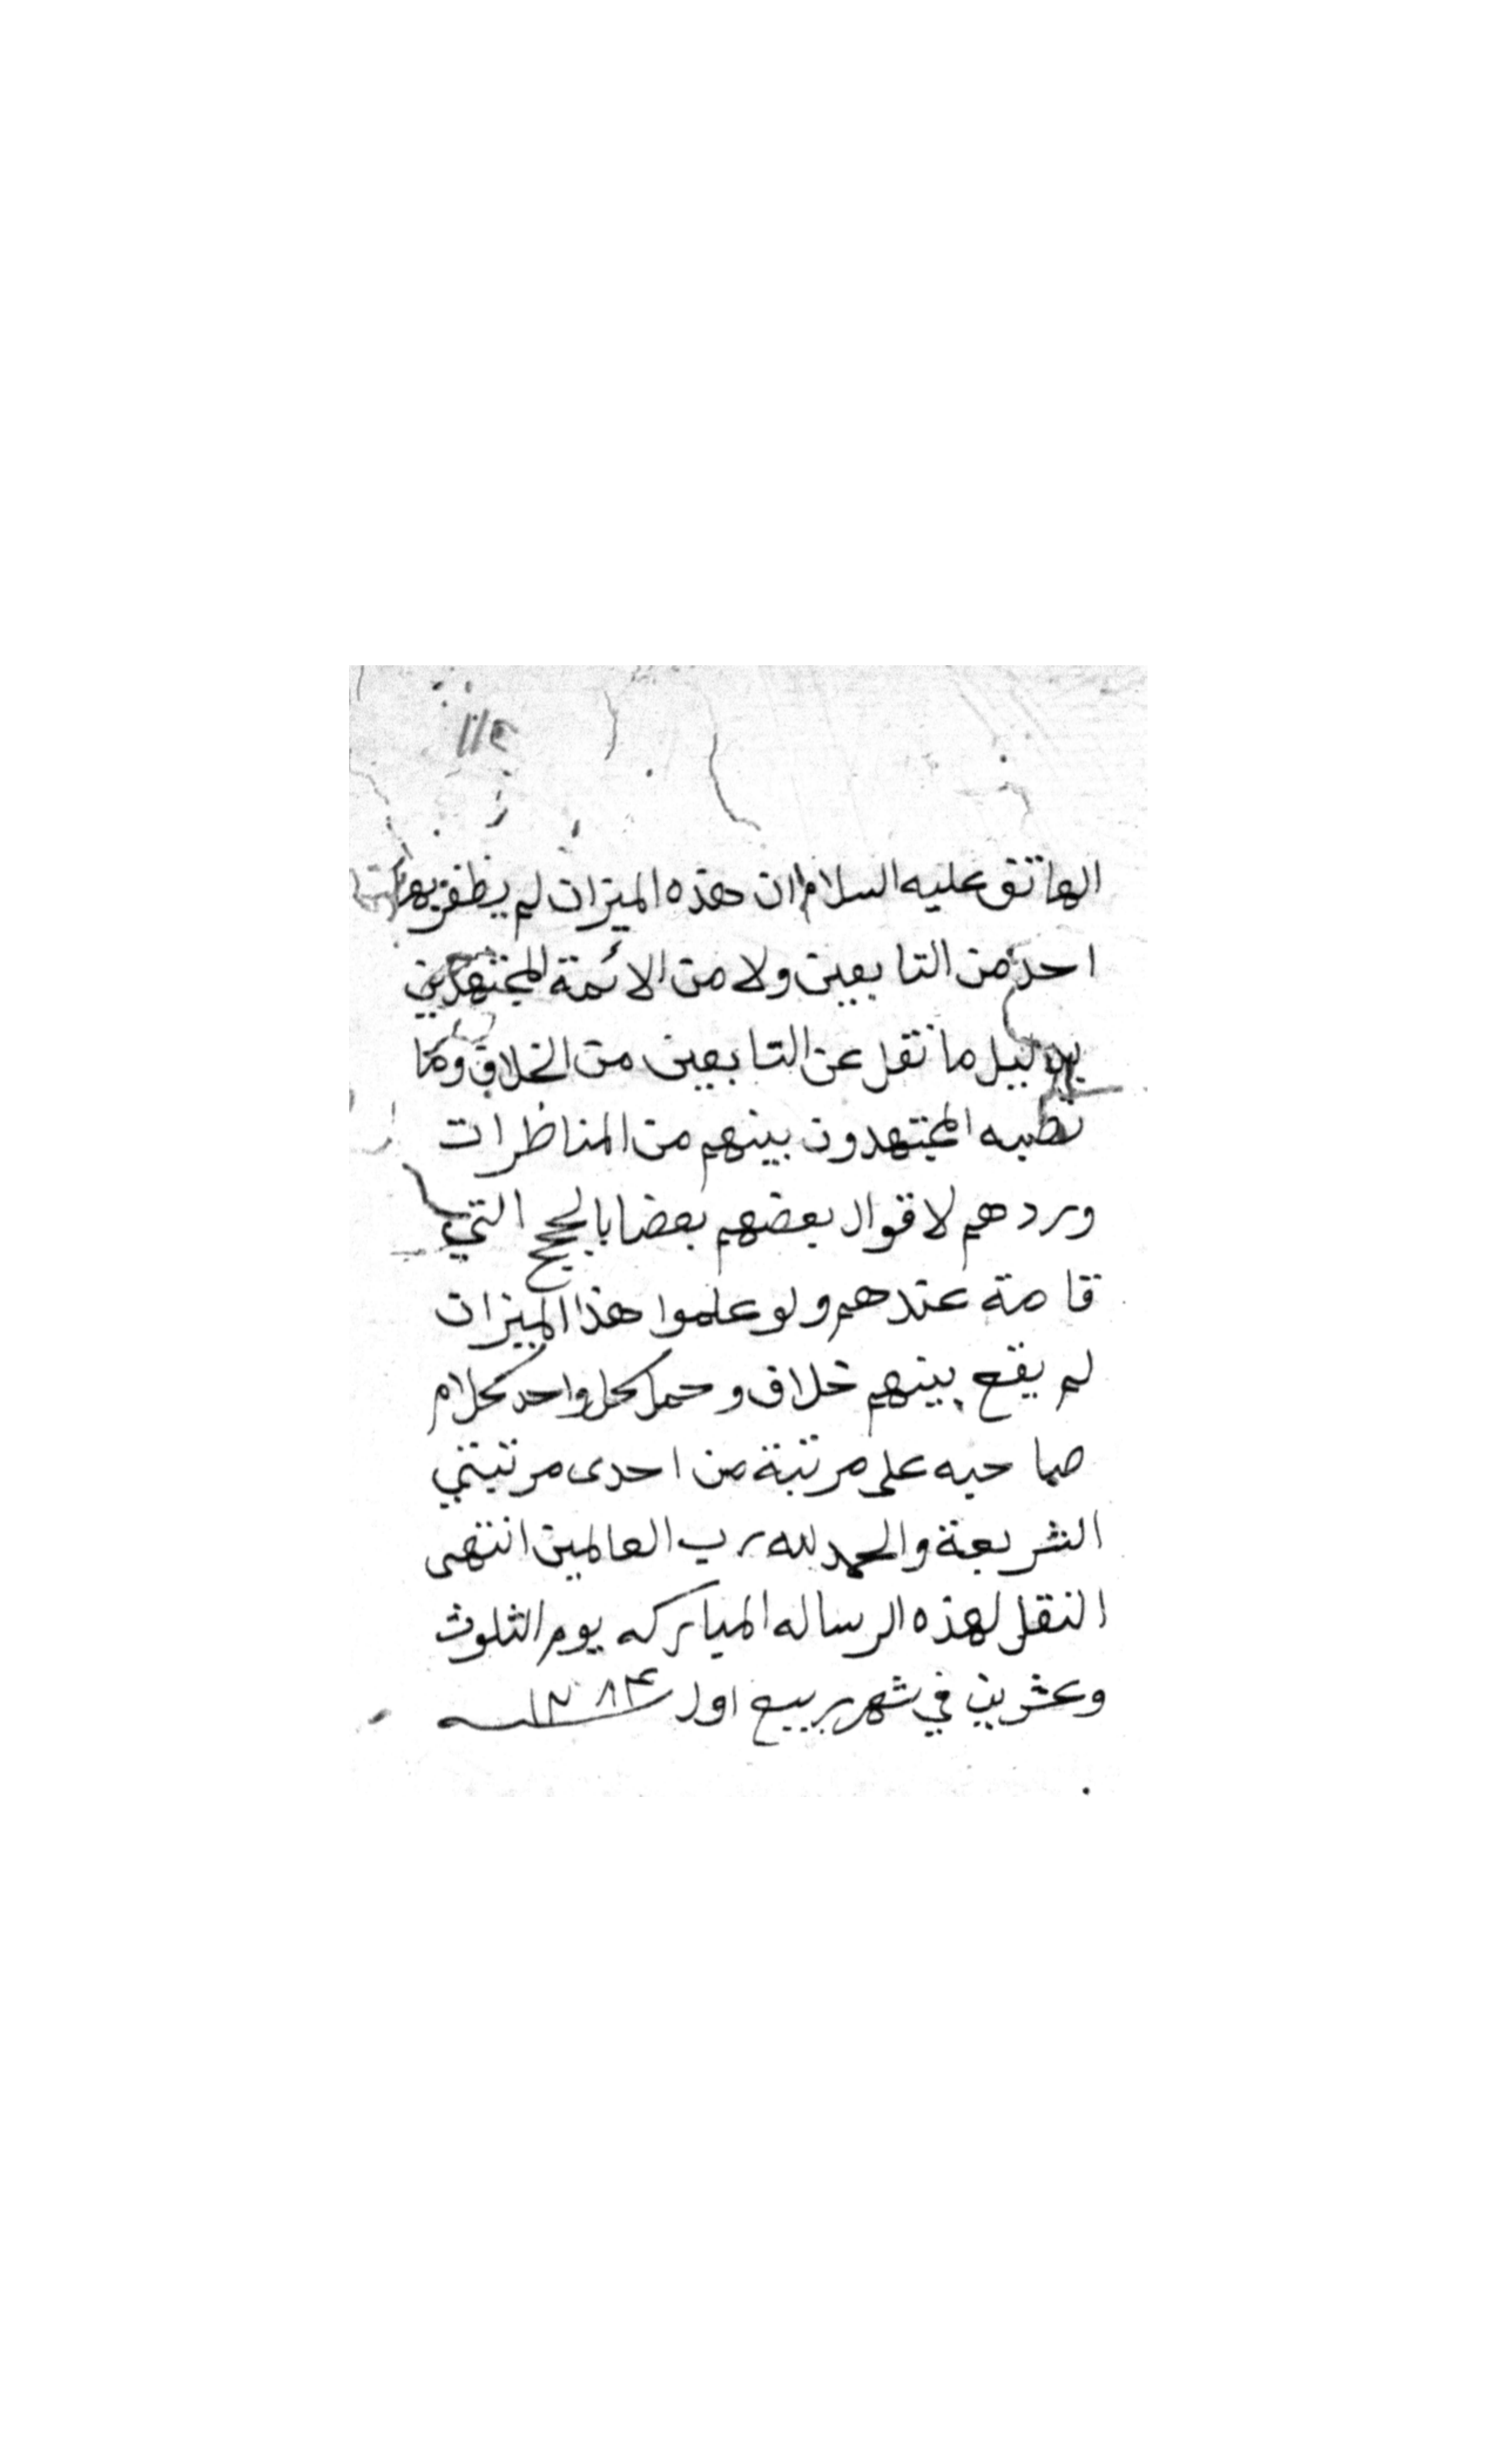 الهاتف عليه السلام ان هذه الميزان لم يظفر بها
احد من التابعين ولا من الائمة المجتهدين
بدليل ما نقل عن التابعين من الخلاف وما
نصبه المجتهدون بينهم من المناظرات
وردهم لاقوال بعضهم بعضا بالحجج التي
قامة عندهم ولو علموا هذا الميزان
لم يقع بينهم خلاف وحمل كل واحد كلام
صاحبه على مرتبة من احدى مرتبتي
الشريعة والحمد لله رب العالمين انتهى
النقل لهذه الرساله المباركه يوم الثلوث
وعشرين في شهر ربيع اول سنه ١٢٨٤